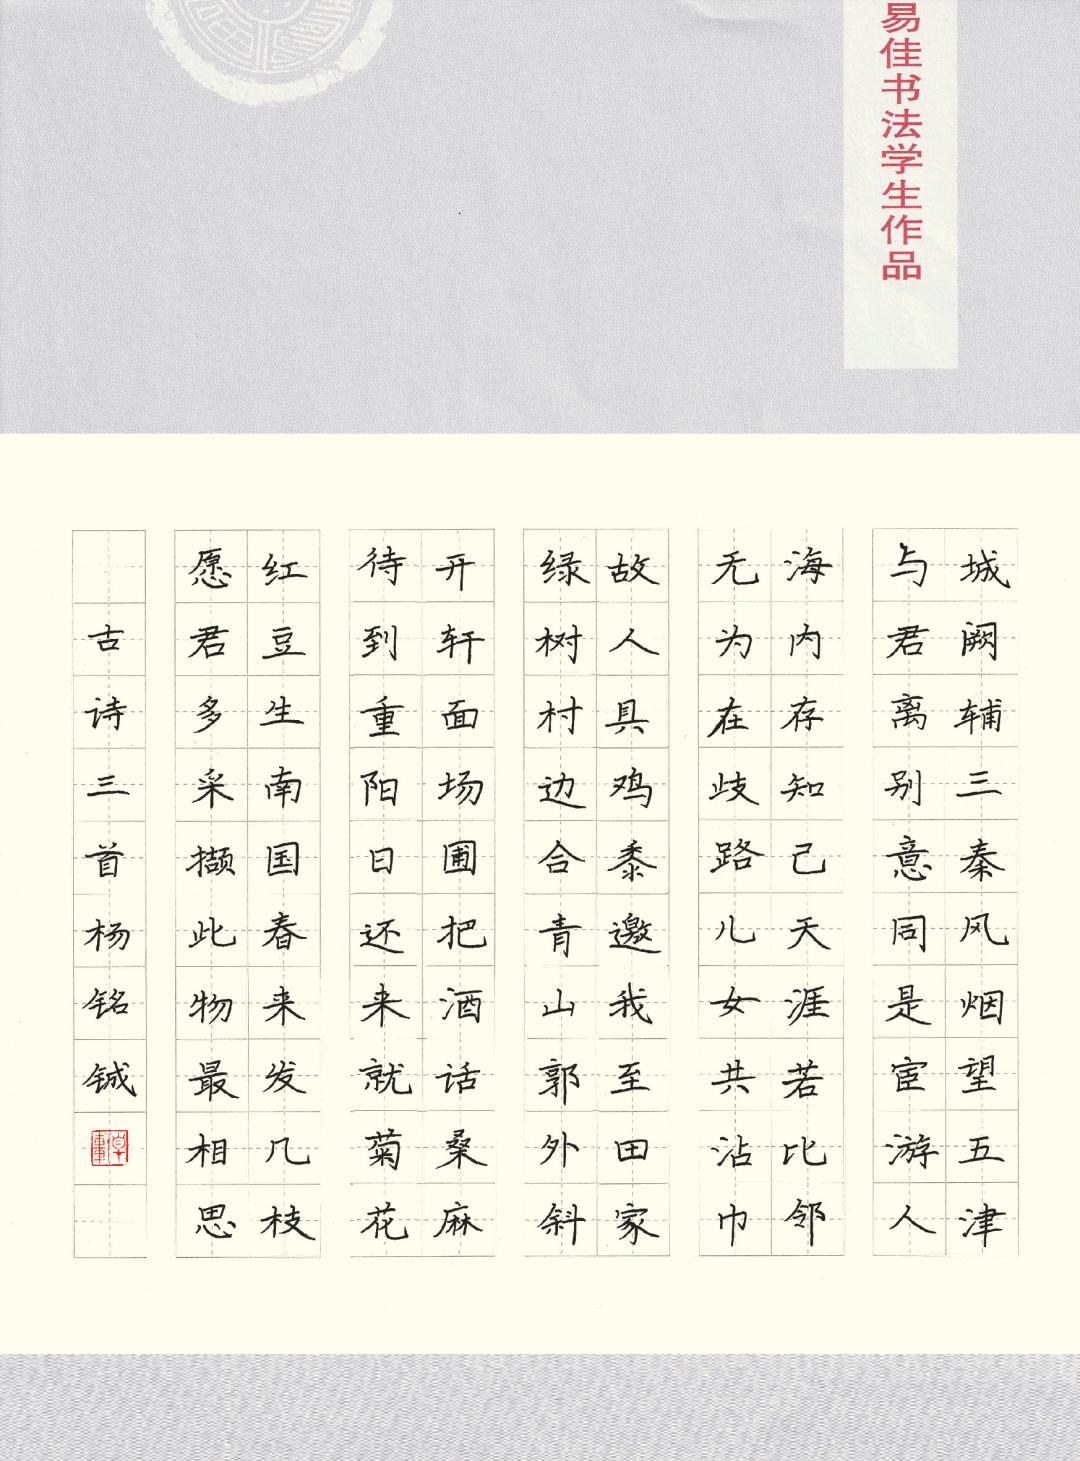 易佳书法学生作品
城阙辅三秦风烟望五津
与君离别意同是宦游人
海内存知己天涯若比邻
无为在歧路儿女共沾巾
故人具鸡黍邀我至田家
绿树村边合青山郭外斜
开轩面场圃把酒话桑麻
待到重阳日还来就菊花
红豆生南国春来发几枝
愿君多采撷此物最相思
古诗三首杨铭铖